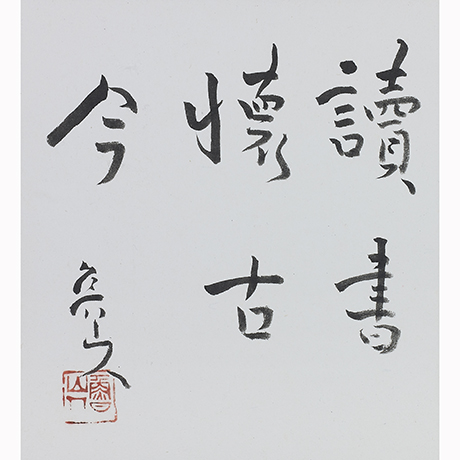 讀書
懷古
今